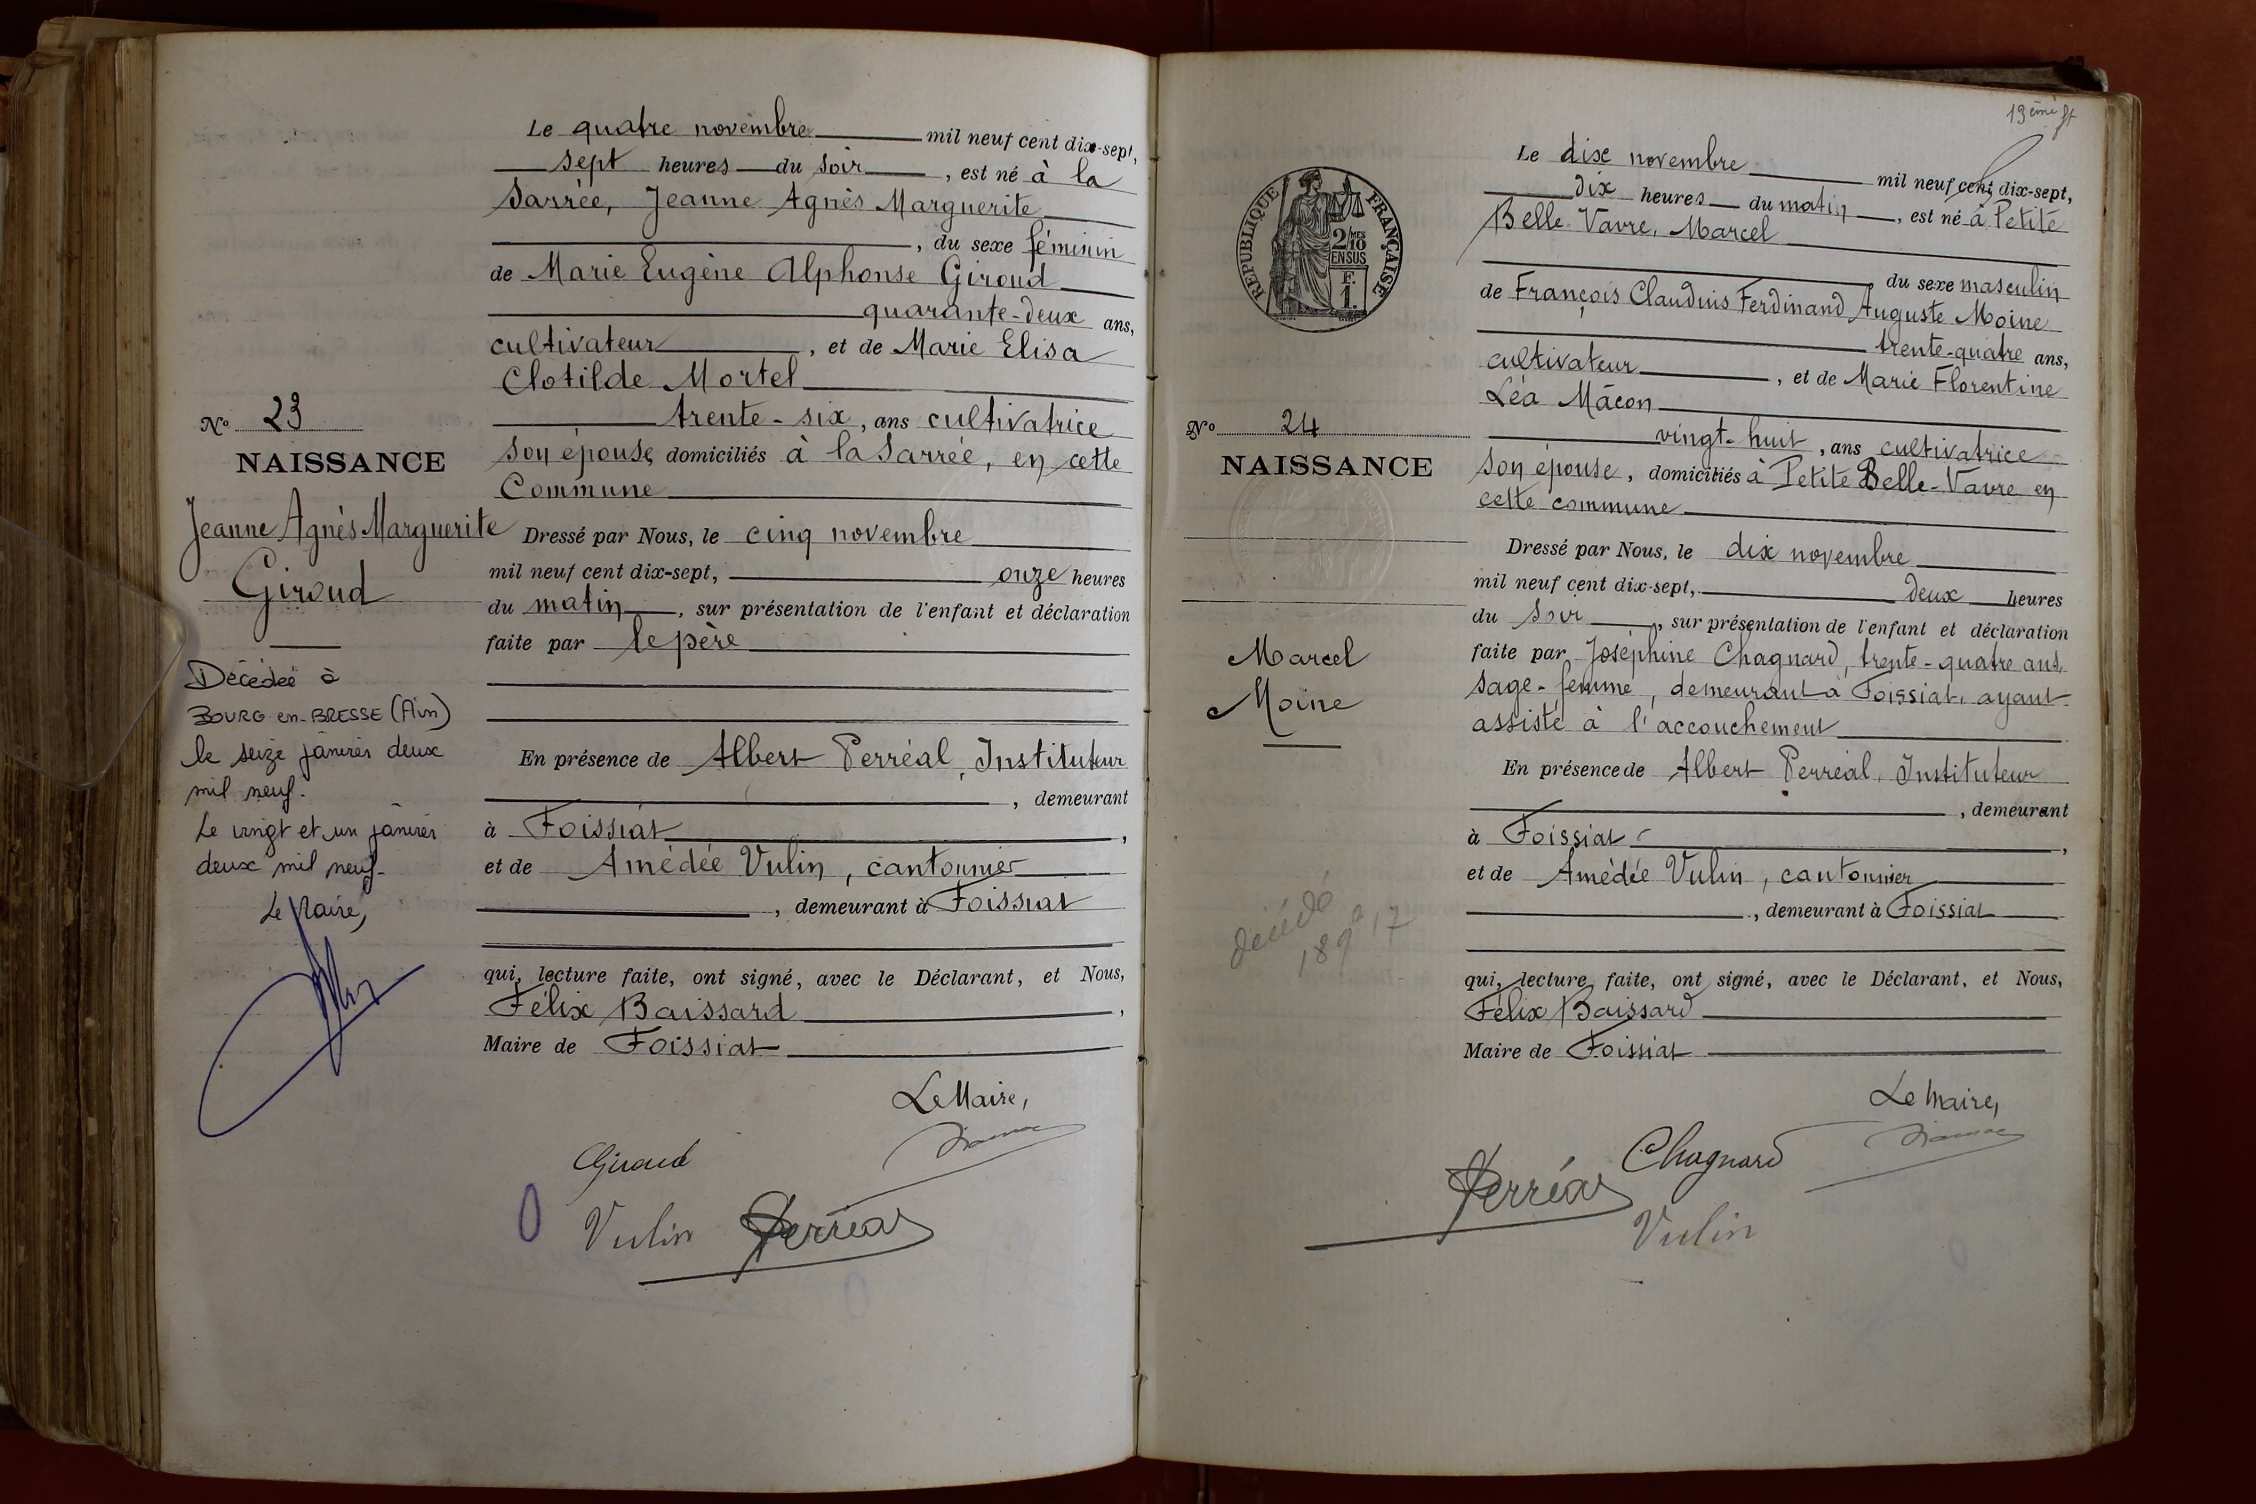 Le quatre novembre mil neuf cent dix-sept,
sept heures du soir, est né à la
Sarrée, Jeanne Agnès Marguerite
, du sexe féminin
de Marie Eugène Alphonse Giroud
quarante-deux ans,
cultivateur, et de Marie Elisa
Clotilde Mortel
trente-six, ans cultivatrice
son épouse, domiciliés à la Sarrée, en cette
Commune
Dressé par Nous, le cinq novembre
mil neuf cent dix-sept, onze heures
du matin, sur présentation de l'enfant et déclaration
faite par le père
En présence de Albert Perréal, Instituteur
, demeurant
à Foissiat,
et de Amédée Vulin, cantonnier
, demeurant à Foissiat
qui, lecture faite, ont signé, avec le Déclarant, et Nous,
Félix Baissard,
Maire de Foissiat
Le Maire,
Giroud
Vulin Perréal
No 23
NAISSANCE
Jeanne Agnès Marguerite
Giroud
Décédée à
BOURG-en-BRESSE (Ain)
le seize janvier deux
mil neuf.
Le vingt et un janvier
deux mil neuf.
Le Maire,
19ème ft
Le dix novembre mil neuf cent dix-sept,
dix heures du matin, est né à Petite
Belle Vavre, Marcel
du sexe masculin
de François Claudius Ferdinand Auguste Moine
trente-quatre ans,
cultivateur, et de Marie Florentine
Léa Mâcon
vingt-huit, ans cultivatrice
son épouse, domiciliés à Petite Belle-Vavre en
cette commune
Dressé par Nous, le dix novembre
mil neuf cent dix-sept, deux heures
du soir, sur présentation de l'enfant et déclaration
faite par Joséphine Chagnard, trente-quatre ans,
sage-femme, demeurant à Foissiat, ayant
assisté à l'accouchement
En présence de Albert Perréal, Instituteur
, demeurant
à Foissiat,
et de Amédée Vulin, cantonnier
, demeurant à Foissiat
qui, lecture faite, ont signé, avec le Déclarant, et Nous,
Félix Baissard
Maire de Foissiat
Le Maire,
Chagnard
Perréal
Vulin
RÉPUBLIQUE FRANÇAISE
2/MES
10
EN SUS
F.
1.
No 24
NAISSANCE
Marcel
Moine
décédé